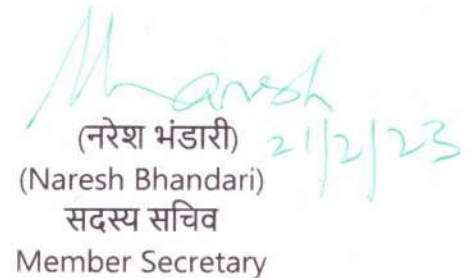 Naresh
(नरेश भंडारी) 21/2/23
(Naresh Bhandari)
सदस्य सचिव
Member Secretary